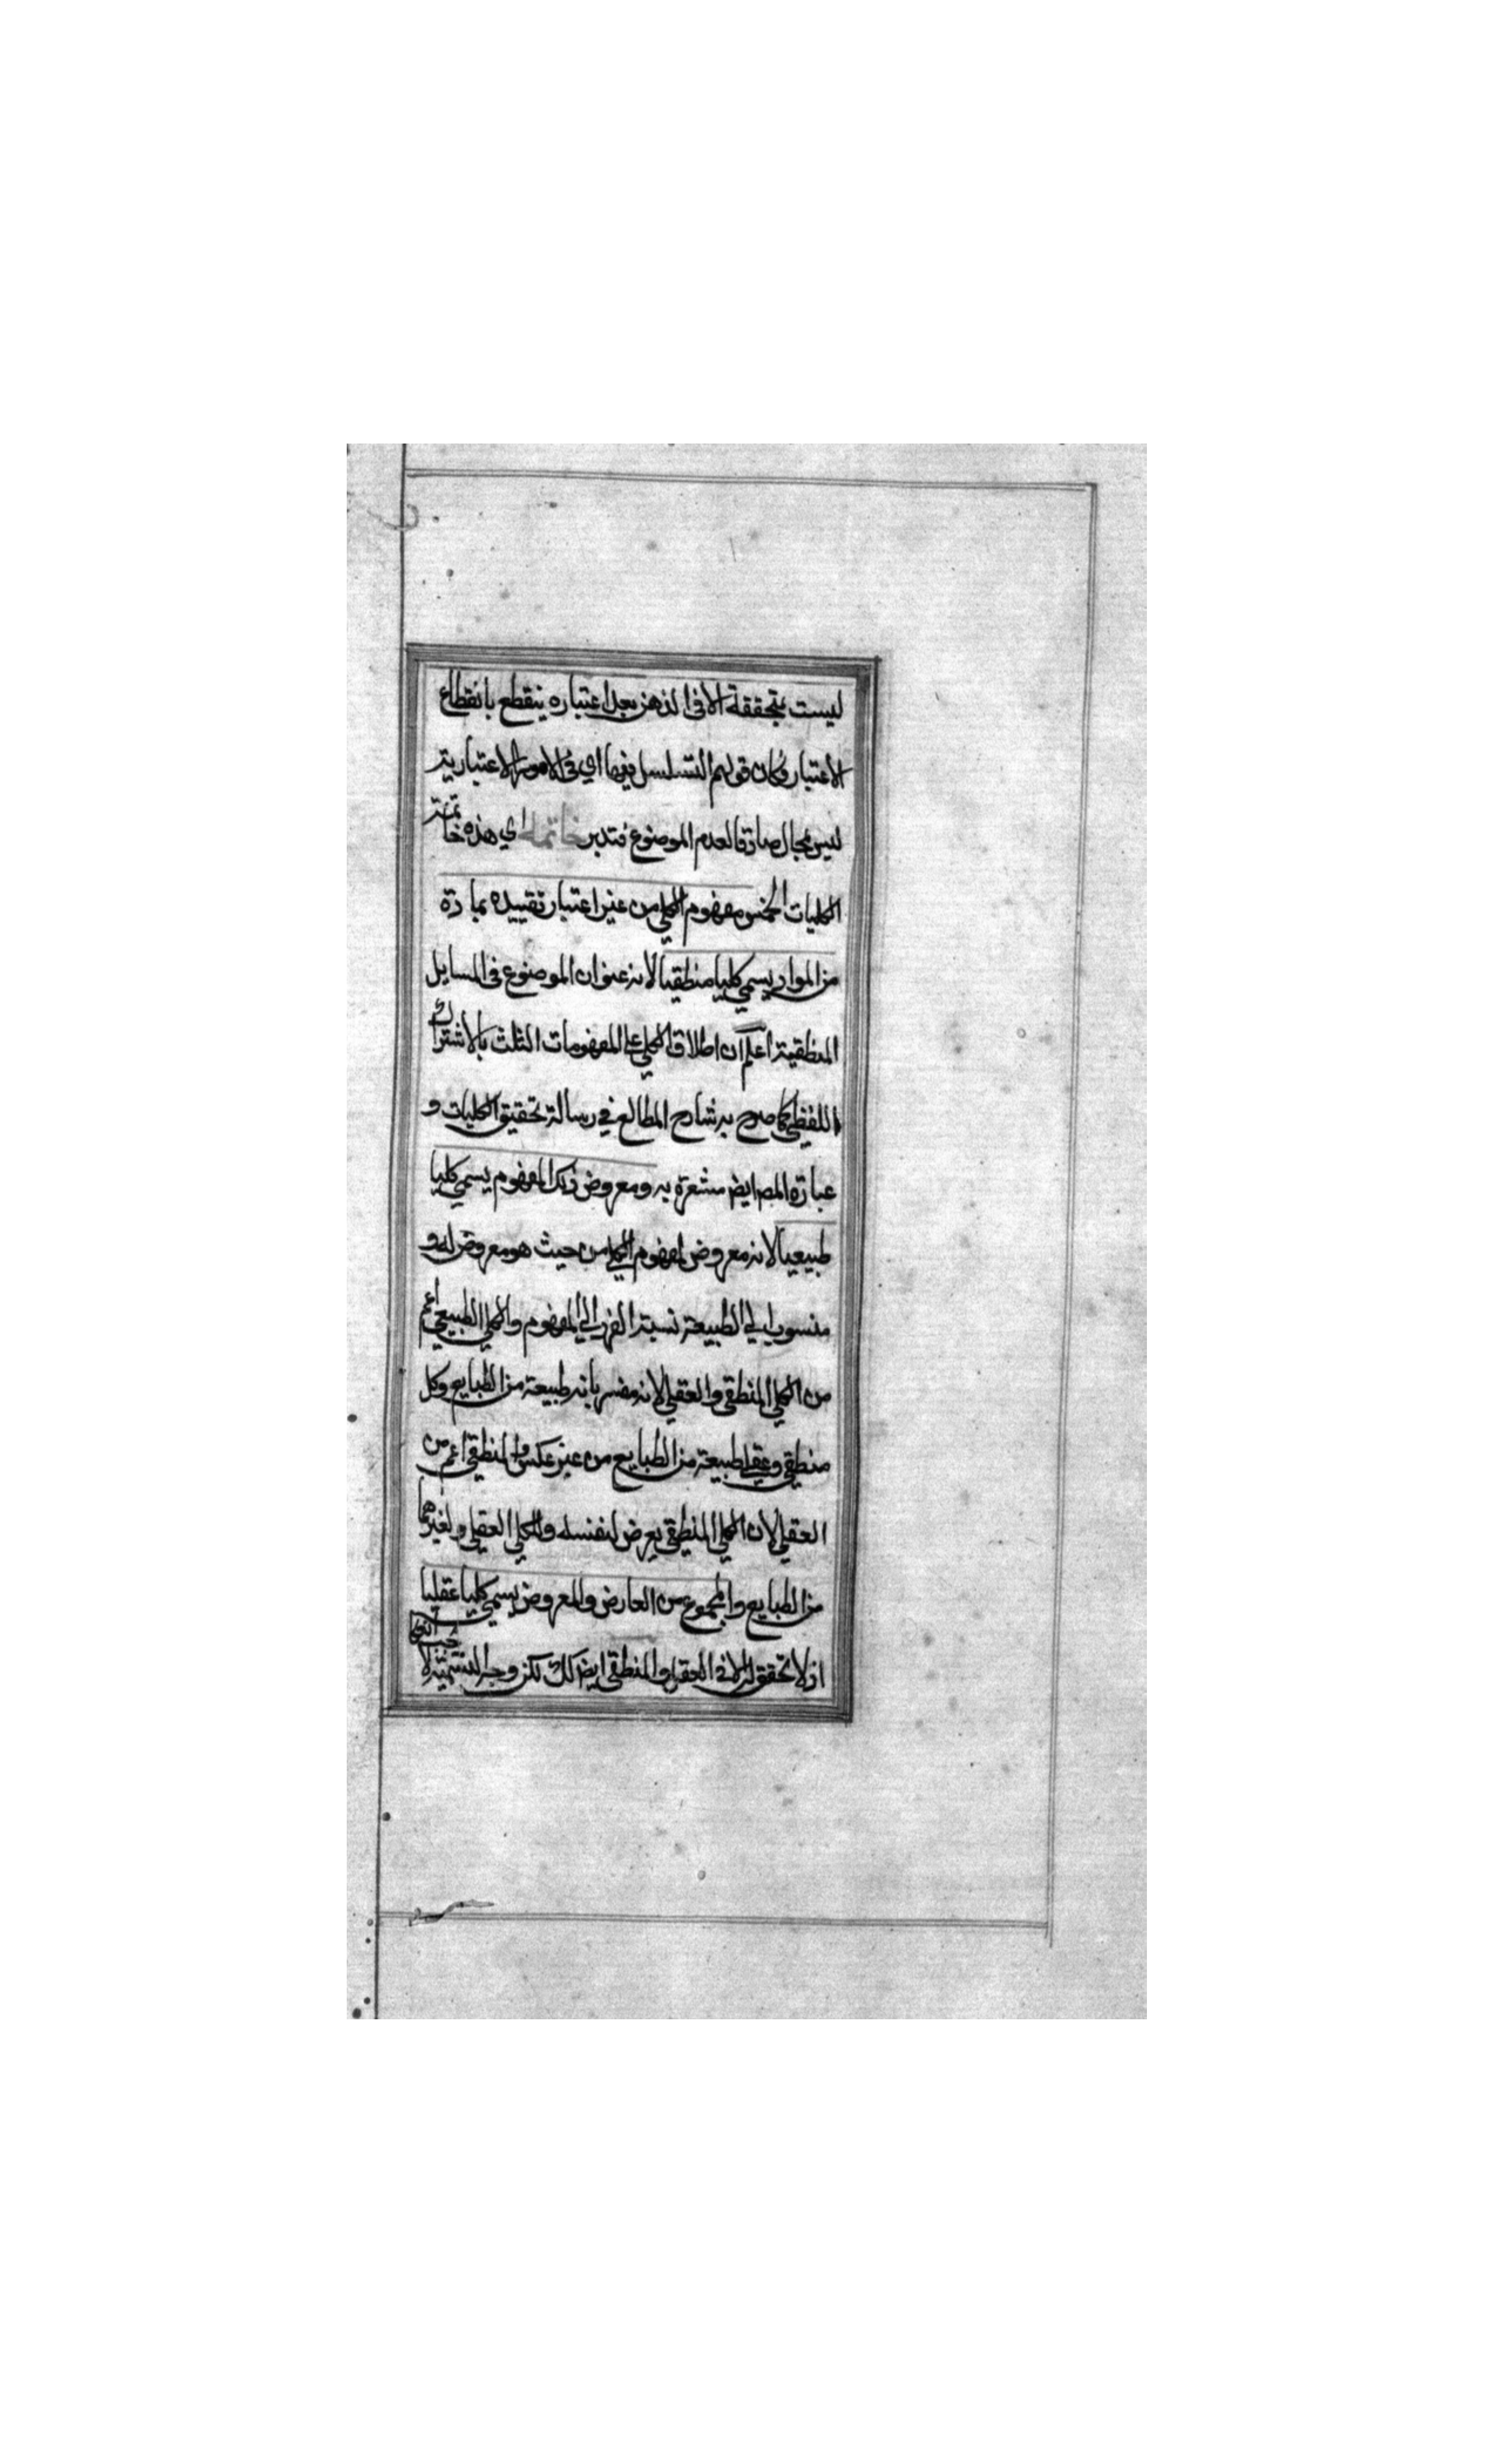 ليست بتحققة الا في الذهن بعد اعتباره ينقطع بانقطاع
الاعتبار فكان قولهم التسلسل فيها اي في الامور الاعتبارية
ليس بمحال صادقا لعدم الموضوع فتدبر خاتمة اي هذه خاتمة
الكليات الخمس مفهوم الكلي من غير اعتبار تقييده بمادة
من المواد يسمي كليا منطقيا لانه عنوان الموضوع في المسايل
المنطقية اعلم ان اطلاق الكلي علي المفهومات الثلث بالاشتراك
اللفظي كما صرح به شارح المطالع في رسالة تحقيق الكليات و
عبارة المص ايض مشعرة به ومعروض ذلك المفهوم يسمي كليا
طبيعيا لانه معروض لمفهوم الكلي من حيث هو معروض له و
منسوب الي الطبيعة نسبة الفرد الي المفهوم والكلي الطبيعي اعم
من الكلي المنطقي والعقلي لانه مفسر بانه طبيعة من الطبايع وكل
منطقي وعقلي طبيعة من الطبايع من غير عكس والمنطقي اعم من
العقلي لان الكلي المنطقي يعرض لنفسه وللكلي العقلي ولغيرهما
من الطبايع والمجموع من العارض والمعروض يسمي كليا عقليا
اذ لا تحقق له الا في العقل والمنطقي ايض كك لكن وجه التسمية لا